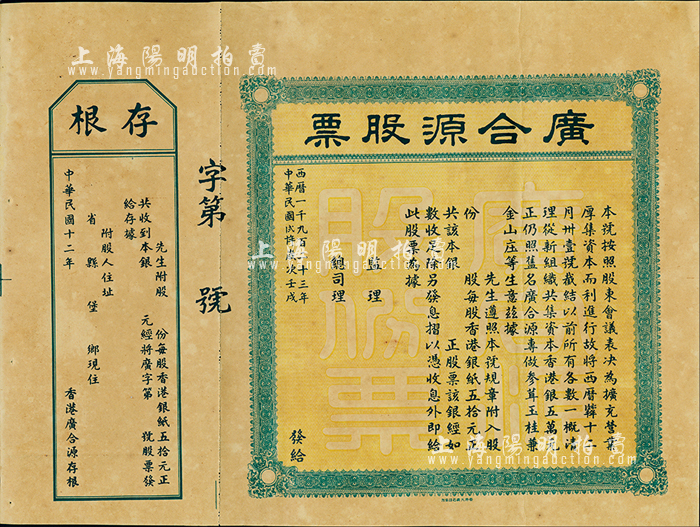 上海陽明拍賣
www.yangmingauction.com
廣合源股票
本號按照股東會議表决為擴充營業
厚集資本而利進行故將西曆
月卅壹號截結以前所有各數一概清
理從新組織共集資本香港銀五萬元
正仍照舊名廣合源專做參茸玉桂兼
金山庄等生意茲據
先生遵照本號規章附入股
份 股每股香港銀紙五拾元正
共該本銀 正股票該銀經如
數收足除另發息摺以憑收息外即給
此股票為據
監理
總司理
西曆一千九百 十三年
中華民國 歲次壬戌
發給
字第 號
存根
先生附股 份每股香港銀紙五拾元正
共收到本銀 元經將廣字第 號股票發
給存據
附股人住址
省 縣 堡 鄉現住
中華民國十二年
香港廣合源存根
上海陽明拍賣
www.yangmingauction.com